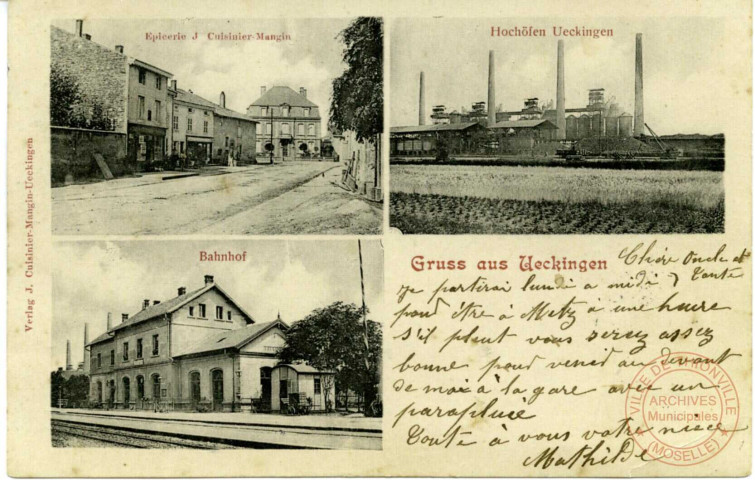 Epicerie J. Cuisinier-Mangin
Hochöfen Ueckingen
Verlag J. Cuisinier-Mangin-Ueckingen
Bahnhof
Gruss aus Ueckingen
Chère Oncle et Tante
je partirai lundi a midi
pour être à Metz à une heure
s'il pleut vous serez assez
bonne pour venir au devant
de moi à la gare avec un
parapluie
Toute à vous votre nièce
Mathilde
VILLE DE THIONVILLE
ARCHIVES
Municipales
(MOSELLE)